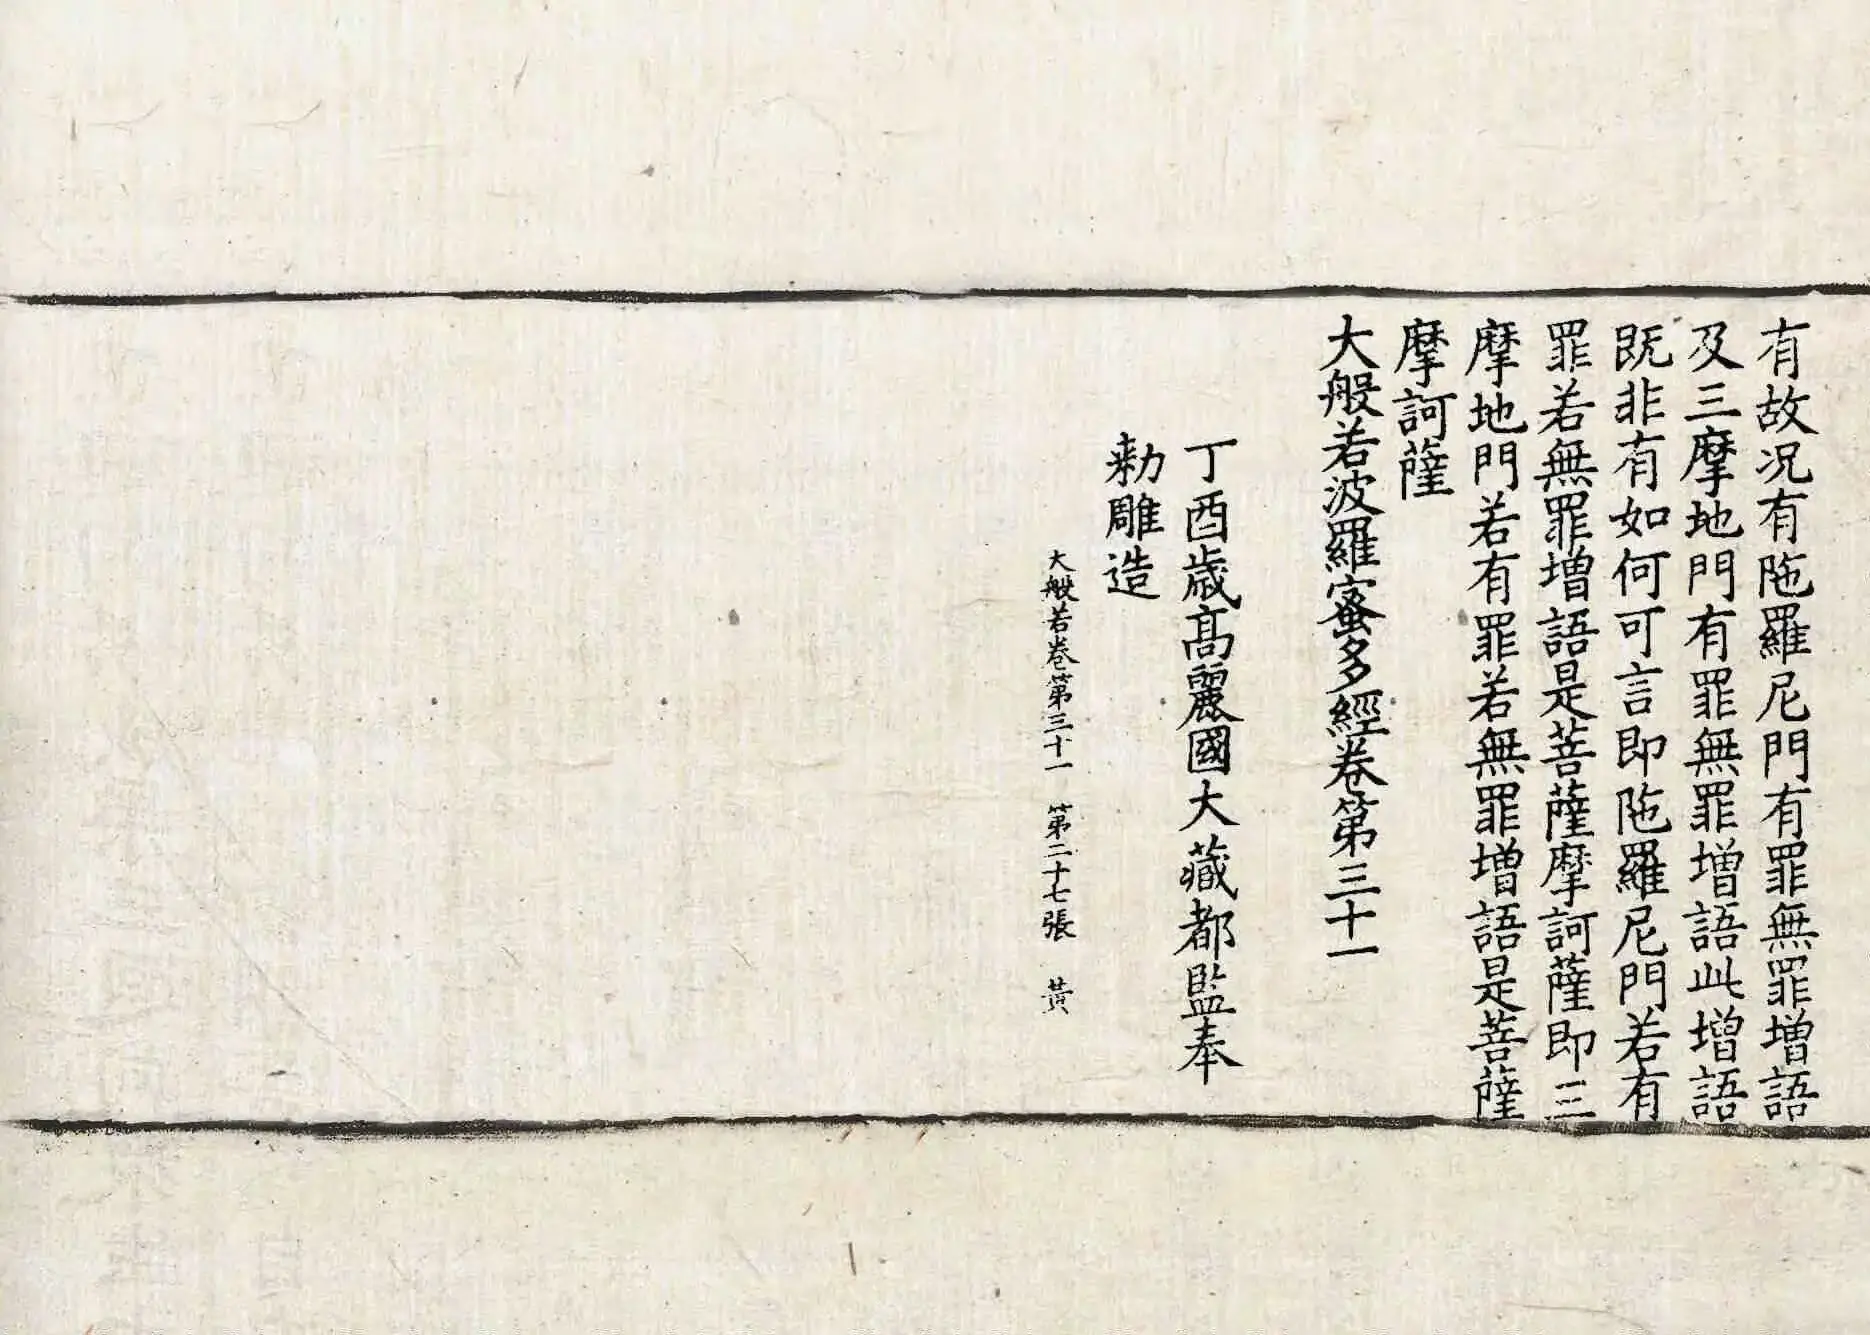 有故况有陁羅尼門有罪無罪增語
及三摩地門有罪無罪增語此增語
旣非有如何可言即陁羅尼門若有
罪若無罪增語是菩薩摩訶薩即三
摩地門若有罪若無罪增語是菩薩
摩訶薩
大般若波羅蜜多經卷第三十一
丁酉歲髙麗國大藏都監奉
勑雕造
大般若卷第三十一 第二十七張 黃